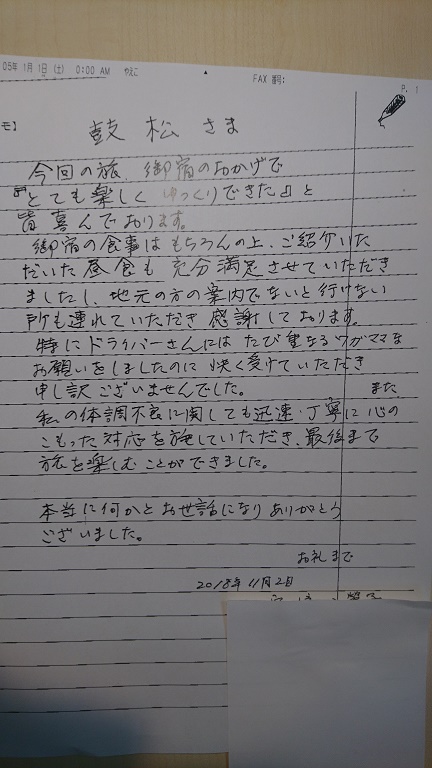 05年 1月 1日(土) 0:00 AM やえこ FAX 番号: P. 1
モ】
鼓 松 さま
今回の旅、御宿のおかげで
『とても楽しく ゆっくりできた』と
皆喜んでおります。
御宿の食事はもちろんの上、ご紹介いた
だいた昼食も 充分満足させていただき
ましたし、地元の方の案内でないと行けない
所も連れていただき 感謝しております。
特にドライバーさんには たび重なるワガママな
お願いをしましたのに 快く受けていただき
申し訳ございませんでした。 また、
私の体調不良に関しても迅速・丁寧に心の
こもった対応を施していただき、最後まで
旅を楽しむことができました。
本当に何かとお世話になり ありがとう
ございました。
お礼まで
2018年11月2日